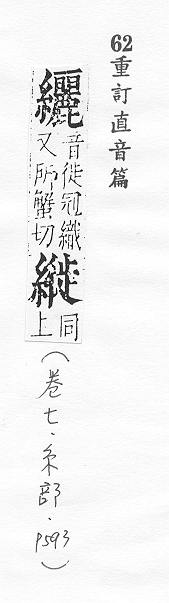 62重訂直音篇
纚音徙冠織
又所蟹切
縰同上
(卷七·糸部·P593)